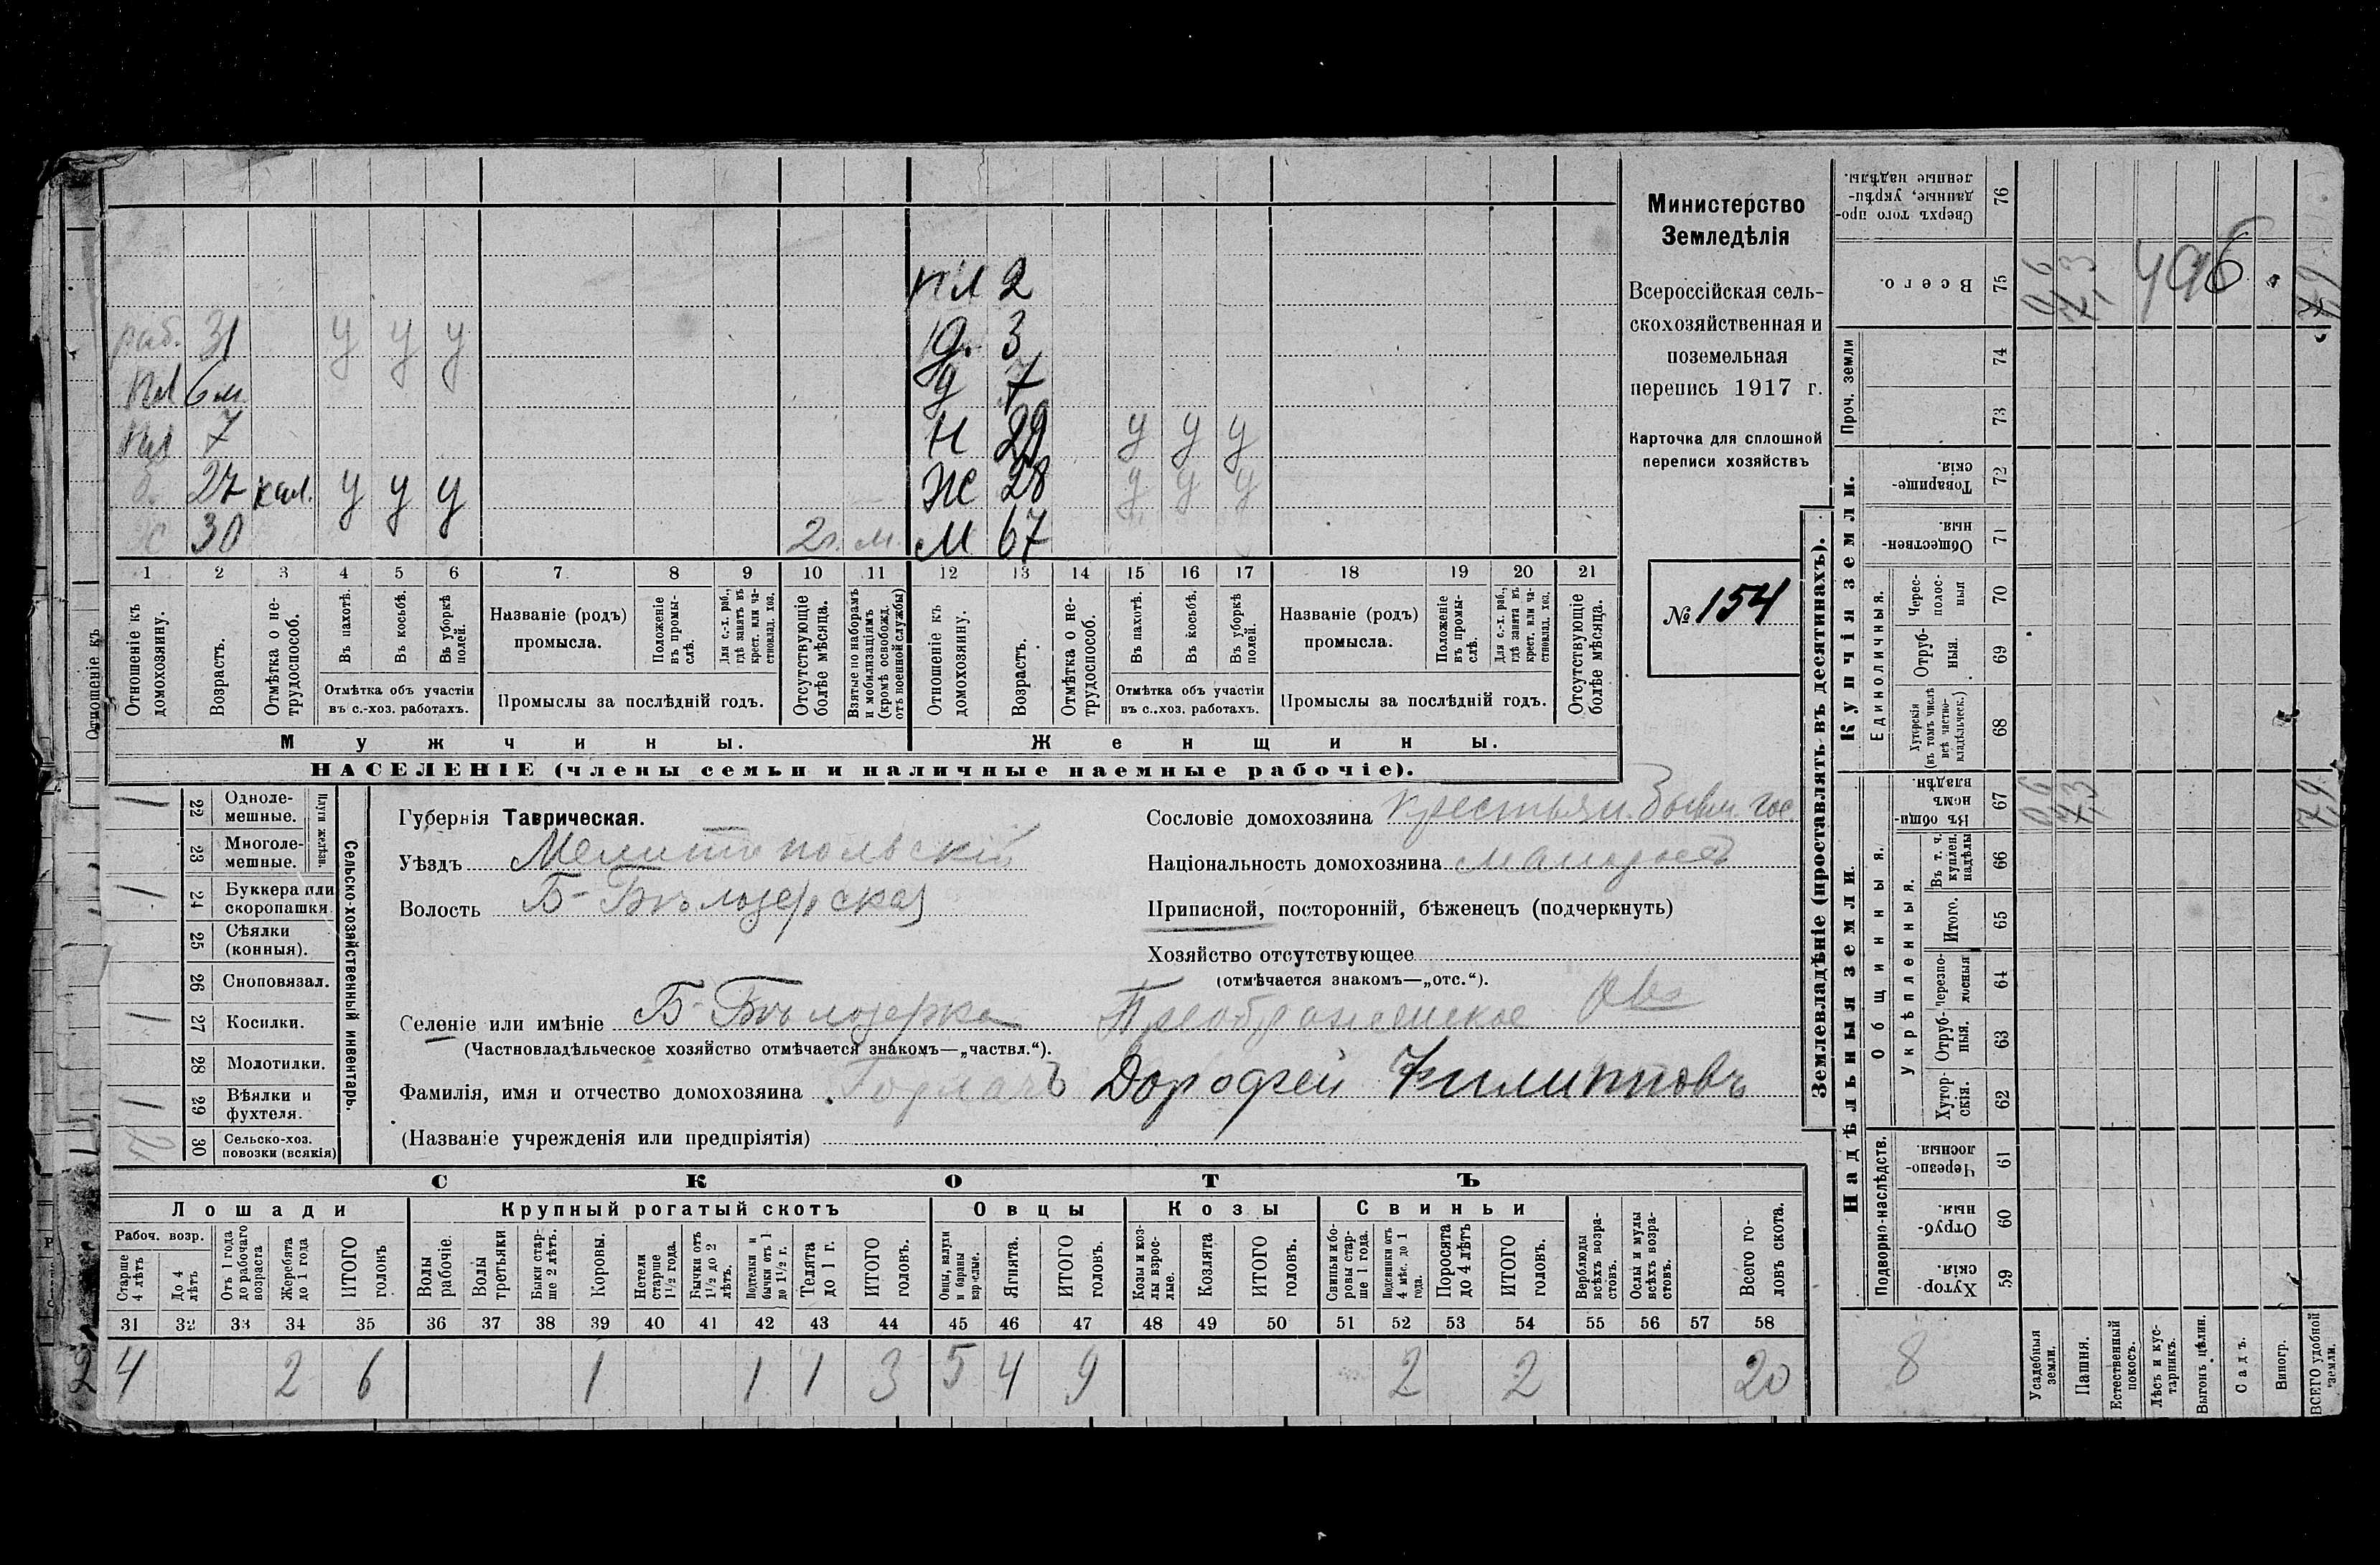 Министерство
Земледѣлія
Всероссійская сель-
скохозяйственная и
поземельная
перепись 1917 г.
Карточка для сплошной
переписи хозяйствъ
№ 154
пл 2
раб. 31 у у у д. 3
пл 6 м д 7
пл 7 Н 29 у у у
27 кал. у у у Ж 28 у у у
30 2г. м. М 67
1 2 3 4 5 6 7 8 9 10 11 12 13 14 15 16 17 18 19 20 21
Отношеніе къ домохозяину.
Возрастъ.
Отмѣтка о не-трудоспособ.
Въ пахотѣ.
Въ косьбѣ.
Въ уборкѣ полей.
Отмѣтка объ участіи въ с.-хоз. работахъ.
Названіе (родъ) промысла.
Положеніе въ промы-слѣ.
Для с.-х. раб., гдѣ занятъ въ крест. или ча-стновлад. хоз.
Промыслы за послѣдній годъ.
Отсутствующіе болѣе мѣсяца.
Взятые по наборамъ и мобилизаціямъ (кромѣ освобожд. отъ военной службы)
Отношеніе къ домохозяину.
Возрастъ.
Отмѣтка о не-трудоспособ.
Въ пахотѣ.
Въ косьбѣ.
Въ уборкѣ полей.
Отмѣтка объ участіи въ с.-хоз. работахъ.
Названіе (родъ) промысла.
Положеніе въ промы-слѣ.
Для с.-х. раб., гдѣ занята въ крест. или ча-стновлад. хоз.
Промыслы за послѣдній годъ.
Отсутствующіе болѣе мѣсяца.
Мужчины. Женщины.
НАСЕЛЕНІЕ (члены семьи и наличные наемные рабочіе).
Отношеніе къ
Сельско-хозяйственный инвентарь.
Плуги желѣзн.
1 22 Одноле-мешные.
23 Многоле-мешные.
1 24 Буккера или скоропашки
25 Сѣялки (конныя).
26 Сноповязал.
1 27 Косилки.
28 Молотилки.
1 29 Вѣялки и фухтеля.
2 30 Сельско-хоз. повозки (всякія)
Губернія Таврическая.
Уѣздъ Мелитопольскій
Волость Б-Бѣлозерская
Селеніе или имѣніе Б-Бѣлозерка Преображенское Ово
(Частновладѣльческое хозяйство отмѣчается знакомъ—„частвл.“).
Фамилія, имя и отчество домохозяина Горлачъ Дорофей Филипповъ
(Названіе учрежденія или предпріятія)
Сословіе домохозяина крестьян. бывш. гос
Національность домохозяина малоросъ
Приписной, посторонній, бѣженецъ (подчеркнуть)
Хозяйство отсутствующее
(отмѣчается знакомъ—„отс.“).
СКОТЪ
Лошади Крупный рогатый скотъ Овцы Козы Свиньи
Рабоч. возр.
Старше 4 лѣтъ
До 4 лѣтъ
Отъ 1 года до рабочаго возраста
Жеребята до 1 года
ИТОГО головъ
Волы рабочіе.
Волы третьяки
Быки стар-ше 2 лѣтъ.
Коровы.
Нетели старше 1½ года.
Бычки отъ 1½ до 2 лѣтъ.
Подтелки и бычки отъ 1 до 1½ г.
Телята до 1 г.
ИТОГО головъ.
Овцы, валухи и бараны взрослые.
Ягнята.
ИТОГО головъ.
Козы и коз-лы взрос-лые.
Козлята
ИТОГО головъ.
Свиньи и бо-ровы стар-ше 1 года.
Подсвинки отъ 4 мѣс. до 1 года.
Поросята до 4 лѣтъ
ИТОГО головъ.
Верблюды всѣхъ возра-стовъ.
Ослы и мулы всѣхъ возра-стовъ.
Всего го-ловъ скота.
31 32 33 34 35 36 37 38 39 40 41 42 43 44 45 46 47 48 49 50 51 52 53 54 55 56 57 58
2 4 2 6 1 1 1 3 5 4 9 2 2 20
Землевладѣніе (проставлять въ десятинахъ).
Надѣльныя земли. Купчія земли. Проч. земли
Сверхъ того про-данные, укрѣп-ленные надѣлы. 76
Всего. 75 0,6 7,3 7,9
496
74
73
Товарище-скія. 72
Обществен-ныя. 71
Единоличныя.
Черес-полос-ныя 70
Отруб-ныя. 69
Хуторскія (въ томъ числѣ всѣ частно-владѣльческ.) 68
Общинныя.
Въ общи-номъ владѣн. 67 0,6 7,3 7,9
Въ т. ч. куплен. надѣлы 66
Укрѣпленныя.
Итого. 65
Черезпо-лосныя 64
Отруб-ныя. 63
Хутор-скія. 62
Подворно-наслѣдств.
Черезпо-лосныя 61
Отруб-ныя. 60
Хутор-скія. 59
8
Усадебныя земли.
Пашня.
Естественный покосъ.
Лѣсъ и кус-тарникъ.
Выгонъ цѣлин.
Садъ.
Виногр.
ВСЕГО удобной земли.